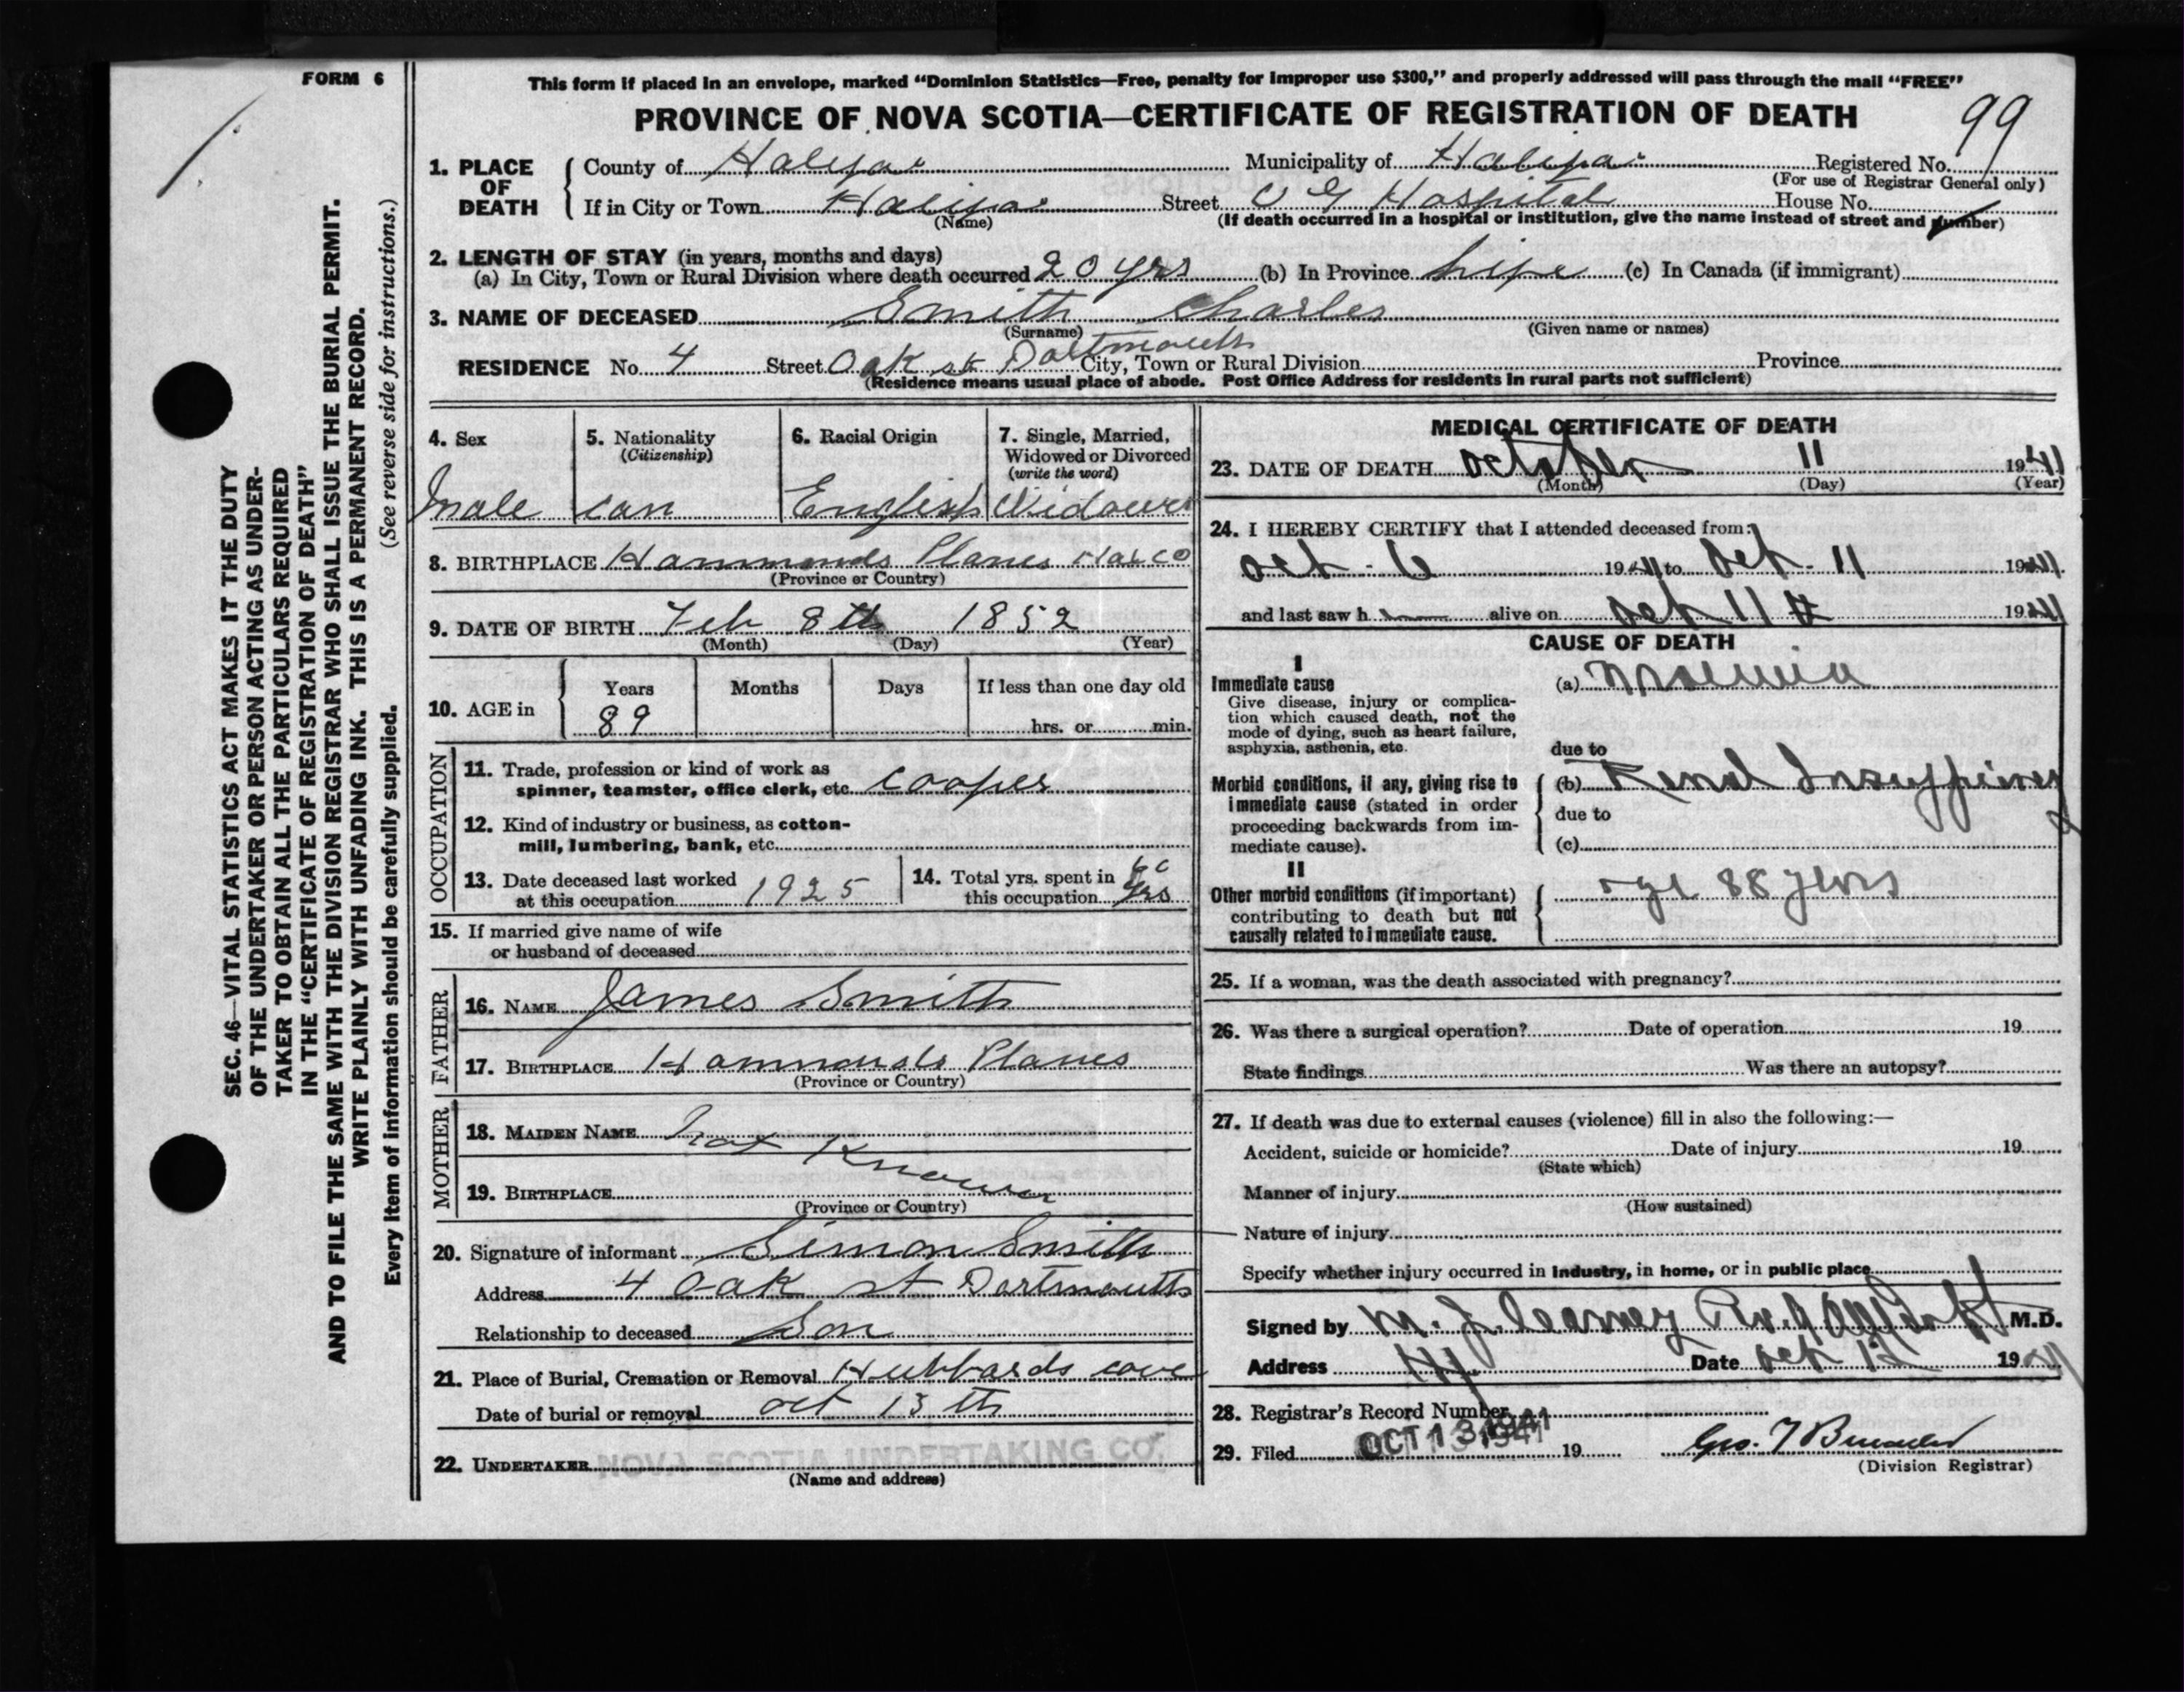 FORM 6
This form if placed in an envelope, marked “Dominion Statistics—Free, penalty for improper use $300,” and properly addressed will pass through the mail “FREE”
PROVINCE OF NOVA SCOTIA—CERTIFICATE OF REGISTRATION OF DEATH
99
SEC. 46—VITAL STATISTICS ACT MAKES IT THE DUTY
OF THE UNDERTAKER OR PERSON ACTING AS UNDER-
TAKER TO OBTAIN ALL THE PARTICULARS REQUIRED
IN THE “CERTIFICATE OF REGISTRATION OF DEATH”
AND TO FILE THE SAME WITH THE DIVISION REGISTRAR WHO SHALL ISSUE THE BURIAL PERMIT.
WRITE PLAINLY WITH UNFADING INK. THIS IS A PERMANENT RECORD.
Every item of information should be carefully supplied. (See reverse side for instructions.)
1. PLACE OF DEATH
County of Halifax Municipality of Halifax Registered No.
(For use of Registrar General only)
If in City or Town Halifax Street V G Hospital House No.
(Name) (If death occurred in a hospital or institution, give the name instead of street and number)
2. LENGTH OF STAY (in years, months and days)
(a) In City, Town or Rural Division where death occurred 20 yrs (b) In Province Life (c) In Canada (if immigrant)
3. NAME OF DECEASED Smith Charles
(Surname) (Given name or names)
RESIDENCE No. 4 Street Oak st Dartmouth City, Town or Rural Division Province
(Residence means usual place of abode. Post Office Address for residents in rural parts not sufficient)
4. Sex
male
5. Nationality
(Citizenship)
can
6. Racial Origin
English
7. Single, Married,
Widowed or Divorced
(write the word)
Widower
8. BIRTHPLACE Hammonds Planes Hal CO
(Province or Country)
9. DATE OF BIRTH Feb 8th 1852
(Month) (Day) (Year)
10. AGE in
Years Months Days If less than one day old
89 hrs. or min.
OCCUPATION
11. Trade, profession or kind of work as
spinner, teamster, office clerk, etc. cooper
12. Kind of industry or business, as cotton-
mill, lumbering, bank, etc.
13. Date deceased last worked
at this occupation 1925
14. Total yrs. spent in
this occupation yrs
15. If married give name of wife
or husband of deceased
FATHER
16. NAME James Smith
17. BIRTHPLACE Hammonds Planes
(Province or Country)
MOTHER
18. MAIDEN NAME Not Known
19. BIRTHPLACE
(Province or Country)
20. Signature of informant Simon Smith
Address 4 Oak st Dartmouth
Relationship to deceased Son
21. Place of Burial, Cremation or Removal Hubbards cove
Date of burial or removal oct 13 th
22. UNDERTAKER NOVA SCOTIA UNDERTAKING CO.
(Name and address)
MEDICAL CERTIFICATE OF DEATH
23. DATE OF DEATH October 11 1941
(Month) (Day) (Year)
24. I HEREBY CERTIFY that I attended deceased from:
Oct. 6 1941 to Oct. 11 1941
and last saw h alive on Oct 11 1941
CAUSE OF DEATH
I
Immediate cause
Give disease, injury or complica-
tion which caused death, not the
mode of dying, such as heart failure,
asphyxia, asthenia, etc.
(a) Uraemia
due to
Morbid conditions, if any, giving rise to
immediate cause (stated in order
proceeding backwards from im-
mediate cause).
(b) Renal Insufficiency
due to
(c)
II
Other morbid conditions (if important)
contributing to death but not
causally related to immediate cause.
age 88 years
25. If a woman, was the death associated with pregnancy?
26. Was there a surgical operation? Date of operation 19
State findings Was there an autopsy?
27. If death was due to external causes (violence) fill in also the following:—
Accident, suicide or homicide? Date of injury 19
(State which)
Manner of injury
(How sustained)
Nature of injury
Specify whether injury occurred in industry, in home, or in public place
Signed by M. J. M.D.
Address Date Oct 12 1941
28. Registrar's Record Number
29. Filed OCT 13 1941 19
Geo. T
(Division Registrar)